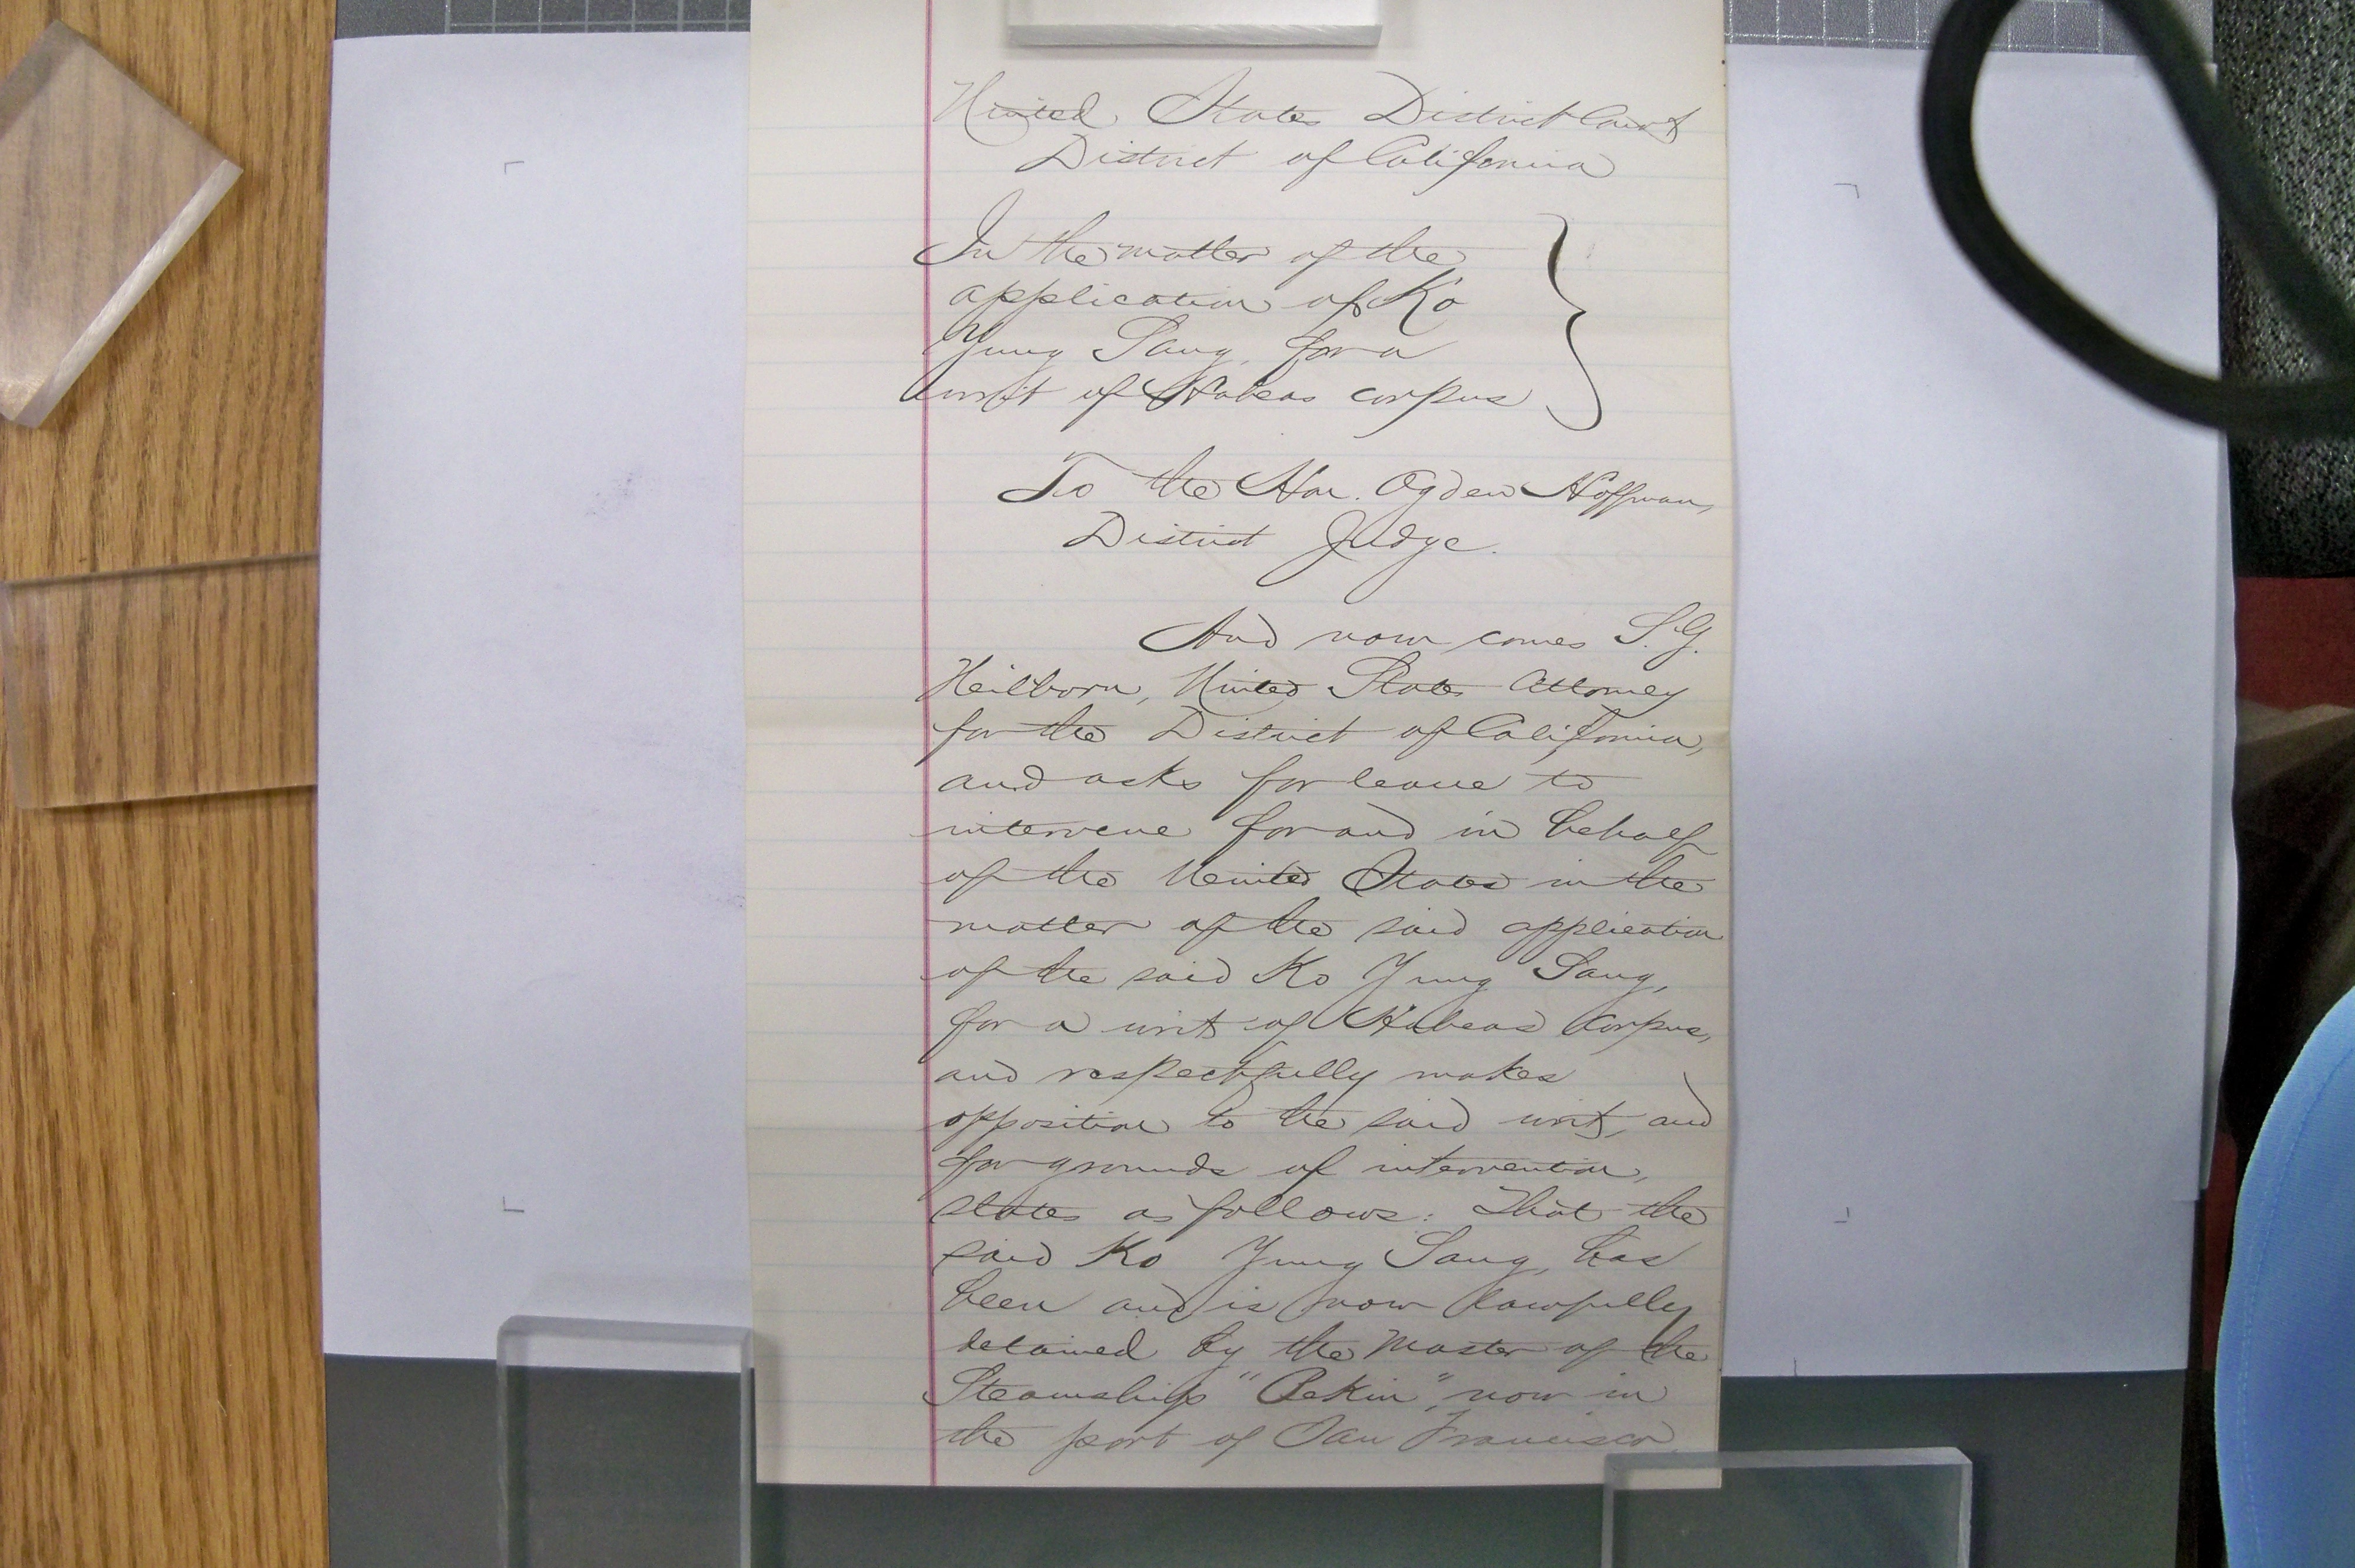 United States District Court
District of California
In the matter of the
application of Ko
Yung Sang, for a
writ of Habeas corpus
To the Hon. Ogden Hoffman,
District Judge.
And now comes S. G.
Heilborn, United States Attorney
for the District of California,
and asks for leave to
intervene for and in behalf
of the United States in the
matter of the said application
of the said Ko Yung Sang,
for a writ of Habeas Corpus,
and respectfully makes
opposition to the said writ, and
for grounds of intervention,
states as follows: That the
said Ko Yung Sang, has
been and is now lawfully
detained by the Master of the
Steamship "Pekin", now in
the port of San Francisco,